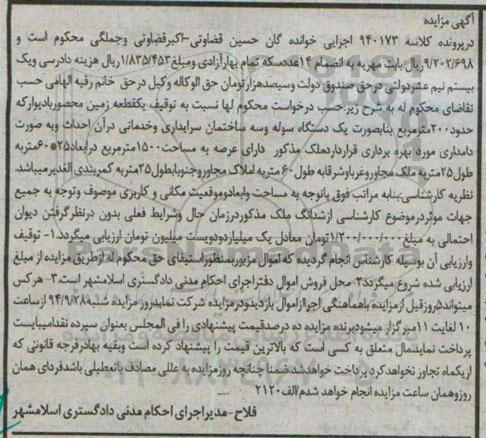 آگهی مزایده
درپرونده کلاسه ۹۴۰۱۷۳ اجرایی خوانده گان حسین قضاوتی-اکبرقضاوتی وجملگی محکوم است و
۹/۲۰۲/۶۹۸ریال بابت مهریه به انضمام ۱۴عددسکه تمام بهارآزادی ومبلغ۱/۸۳۵/۴۵۳ریال هزینه دادرسی ویک
بیستم نیم عشردولتی درحق صندوق دولت وسیصدهزارتومان حق الوکاله وکیل درحق خانم رقیه الهامی حسب
تقاضای محکوم له به شرح زیر:حسب درخواست محکوم لها نسبت به توقیف یکقطعه زمین محصوربادیوارکه
حدود۲۰۰مترمربع بنابصورت یک دستگاه سوله وسه ساختمان سرایداری وخدماتی درآن احداث وبه صورت
دامداری مورد بهره برداری قراردارد.ملک مذکور دارای عرصه به مساحت۱۵۰۰مترمربع درابعاد۲۵*۶۰متربه
طول۲۵متربه ملک مجاوروغرباوشرقابه طول۶۰متربه املاک مجاوروجنوبابطول۲۵متربه کمربندی الغدیرمیباشد.
نظریه کارشناسی:بنابه مراتب فوق باتوجه به مساحت وابعادوموقعیت مکانی و کاربری موصوف وتوجه به جمیع
جهات موثردرموضوع کارشناسی ازششدانگ ملک مذکوردرزمان حال وشرایط فعلی بدون درنظرگرفتن دیوان
احتمالی به مبلغ۱/۲۰۰/۰۰۰/۰۰۰تومان معادل یک میلیاردودویست میلیون تومان ارزیابی میگردد.۱- توقیف
وارزیابی آن بوسیله کارشناس انجام گردیده که اموال مزبوربمنظوراستیفای حق محکوم له ازطریق مزایده از مبلغ
ارزیابی شده شروع میگردد۲ محل فروش اموال دفتراجرای احکام مدنی دادگستری اسلامشهر است.۳- هرکس
میتواند۵روزقبل ازمزایده باهماهنگی اجراازاموال بازدیدودرمزایده شرکت نمایدروز مزایده شنبه۹۴/۹/۲۸ازساعت
۱۰ لغایت ۱۱میبرگزار میشودبرنده مزایده ده درصدقیمت پیشنهادی را فی المجلس بعنوان سپرده نقدامیبایست
پرداخت نمایدمال متعلق به کسی است که بالاترین قیمت را پیشنهاد کرده است وبقیه بهادرفرجه قانونی که
ازیکماه تجاوز نخواهدکرد پرداخت خواهدشد.ضمنا چنانچه روزمزایده به عللی مصادف باتعطیلی باشدفردای همان
روزوهمان ساعت مزایده انجام خواهد شدم/الف۲۱۲۰
فلاح-مدیراجرای احکام مدنی دادگستری اسلامشهر